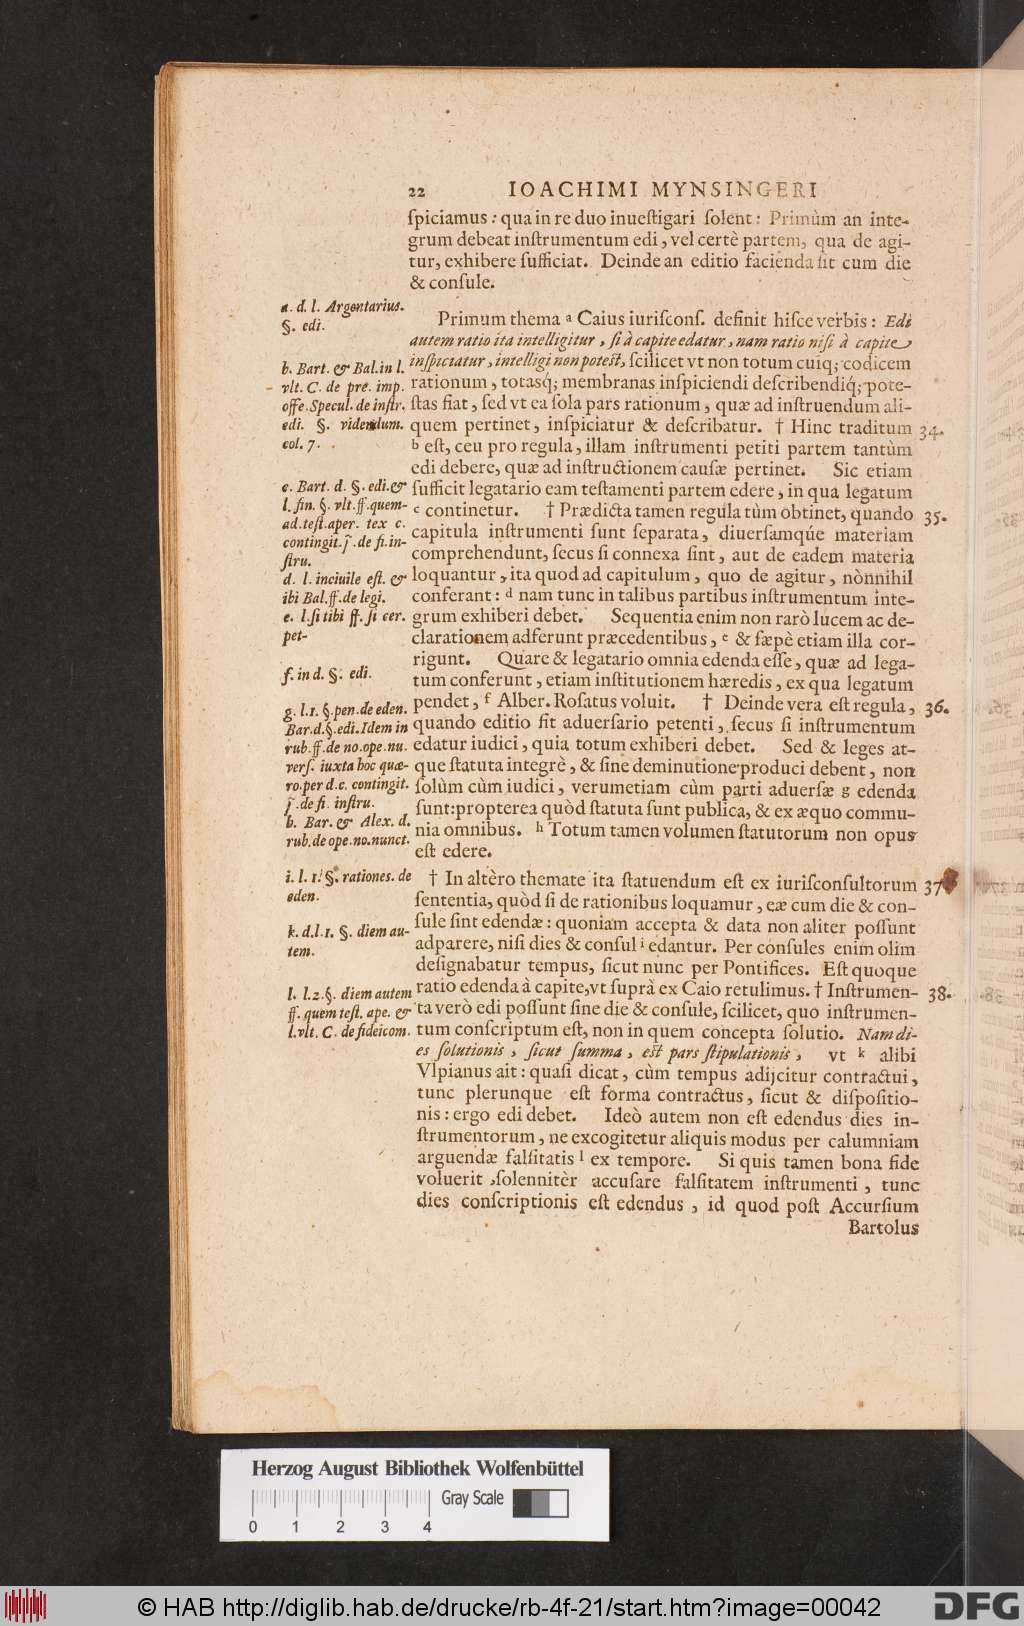 22 IOACHIMI MYNSINGERI
ſpiciamus: qua in re duo inueſtigari ſolent: Primùm an inte-
grum debeat inſtrumentum edi, vel certè partem, qua de agi-
tur, exhibere ſufficiat. Deinde an editio facienda ſit cum die
& conſule.
Primum thema a Caius iuriſconſ. definit hiſce verbis: Edi
autem ratio ita intelligitur, ſi à capite edatur, nam ratio niſi à capite
inſpiciatur, intelligi non poteſt, ſcilicet vt non totum cuiq; codicem
rationum, totasq́; membranas inſpiciendi deſcribendiq́; pote-
ſtas fiat, ſed vt ea ſola pars rationum, quæ ad inſtruendum ali-
quem pertinet, inſpiciatur & deſcribatur. † Hinc traditum
b eſt, ceu pro regula, illam inſtrumenti petiti partem tantùm
edi debere, quæ ad inſtructionem cauſæ pertinet. Sic etiam
ſufficit legatario eam teſtamenti partem edere, in qua legatum
c continetur. † Prædicta tamen regula tùm obtinet, quando
capitula inſtrumenti ſunt ſeparata, diuerſamq́úe materiam
comprehendunt, ſecus ſi connexa ſint, aut de eadem materia
loquantur, ita quod ad capitulum, quo de agitur, nònnihil
conferant: d nam tunc in talibus partibus inſtrumentum inte-
grum exhiberi debet. Sequentia enim non rarò lucem ac de-
clarationem adferunt præcedentibus, e & ſæpè etiam illa cor-
rigunt. Quare & legatario omnia edenda eſſe, quæ ad lega-
tum conferunt, etiam inſtitutionem hæredis, ex qua legatum
pendet, f Alber. Roſatus voluit. † Deinde vera eſt regula,
quando editio fit aduerſario petenti, ſecus ſi inſtrumentum
edatur iudici, quia totum exhiberi debet. Sed & leges at-
que ſtatuta integrè, & ſine deminutione produci debent, non
ſolùm cùm iudici, verumetiam cùm parti aduerſæ g edenda
ſunt: propterea quòd ſtatuta ſunt publica, & ex æquo commu-
nia omnibus. h Totum tamen volumen ſtatutorum non opus
eſt edere.
† In altèro themate ita ſtatuendum eſt ex iuriſconſultorum
ſententia, quòd ſi de rationibus loquamur, eæ cum die & con-
ſule ſint edendæ: quoniam accepta & data non aliter poſſunt
adparere, niſi dies & conſul i edantur. Per conſules enim olim
deſignabatur tempus, ſicut nunc per Pontifices. Eſt quoque
ratio edenda à capite, vt ſuprà ex Caio retulimus. † Inſtrumen-
ta verò edi poſſunt ſine die & conſule, ſcilicet, quo inſtrumen-
tum conſcriptum eſt, non in quem concepta ſolutio. Nam di-
es ſolutionis, ſicut ſumma, eſt pars ſtipulationis, vt k alibi
Vlpianus ait: quaſi dicat, cùm tempus adijcitur contractui,
tunc plerunque eſt forma contractus, ſicut & diſpoſitio-
nis: ergo edi debet. Ideò autem non eſt edendus dies in-
ſtrumentorum, ne excogitetur aliquis modus per calumniam
arguendæ falſitatis l ex tempore. Si quis tamen bona fide
voluerit ſolennitèr accuſare falſitatem inſtrumenti, tunc
dies conſcriptionis eſt edendus, id quod poſt Accurſium
Bartolus
a. d. l. Argentarius.
§. edi.
b. Bart. & Bal. in l.
vlt. C. de pre. imp.
offe. Specul. de inſtr.
edi. §. videndum.
col. 7.
c. Bart. d. §. edi. &
l. fin. §. vlt. ff. quem-
ad. teſt. aper. tex c.
contingit. j. de fi. in-
ſtru.
d. l. inciuile eſt. &
ibi Bal. ff. de legi.
e. l. ſi tibi ff. ſi cer.
pet-
f. in d. §. edi.
g. l. 1. §. pen. de eden.
Bar. d. §. edi. Idem in
rub. ff. de no. ope. nu.
verſ. iuxta hoc quæ-
ro. per d. c. contingit.
j. de fi. inſtru.
h. Bar. & Alex. d.
rub. de ope. no. nunct.
i. l. 1. §. rationes. de
eden.
k. d. l. 1. §. diem au-
tem.
l. l. 2. §. diem autem
ff. quem teſt. ape. &
l. vlt. C. de fideicom.
34.
35.
36.
37
38.
Herzog August Bibliothek Wolfenbüttel
Gray Scale
0 1 2 3 4
© HAB http://diglib.hab.de/drucke/rb-4f-21/start.htm?image=00042
DFG